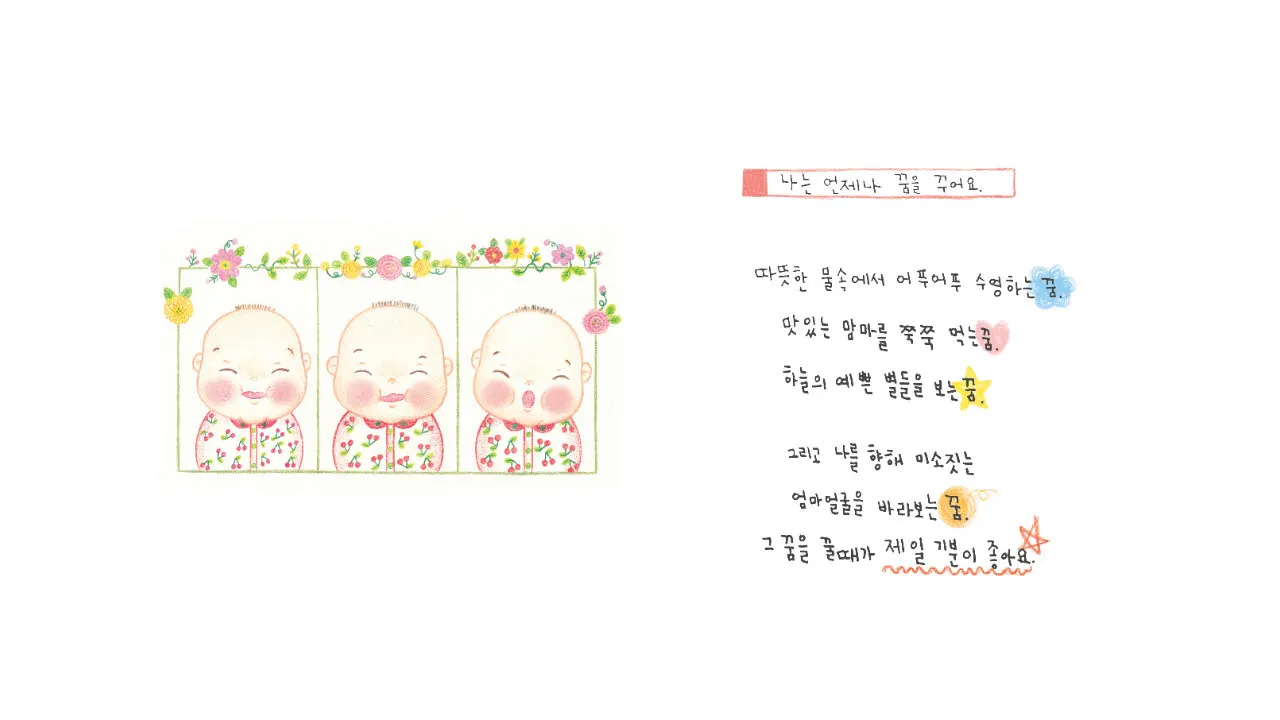 나는 언제나 꿈을 꾸어요.
따뜻한 물속에서 어푸어푸 수영하는 꿈.
맛있는 맘마를 쭉쭉 먹는 꿈.
하늘의 예쁜 별들을 보는 꿈.
그리고 나를 향해 미소짓는
엄마얼굴을 바라보는 꿈.
그 꿈을 꿀때가 제일 기분이 좋아요.